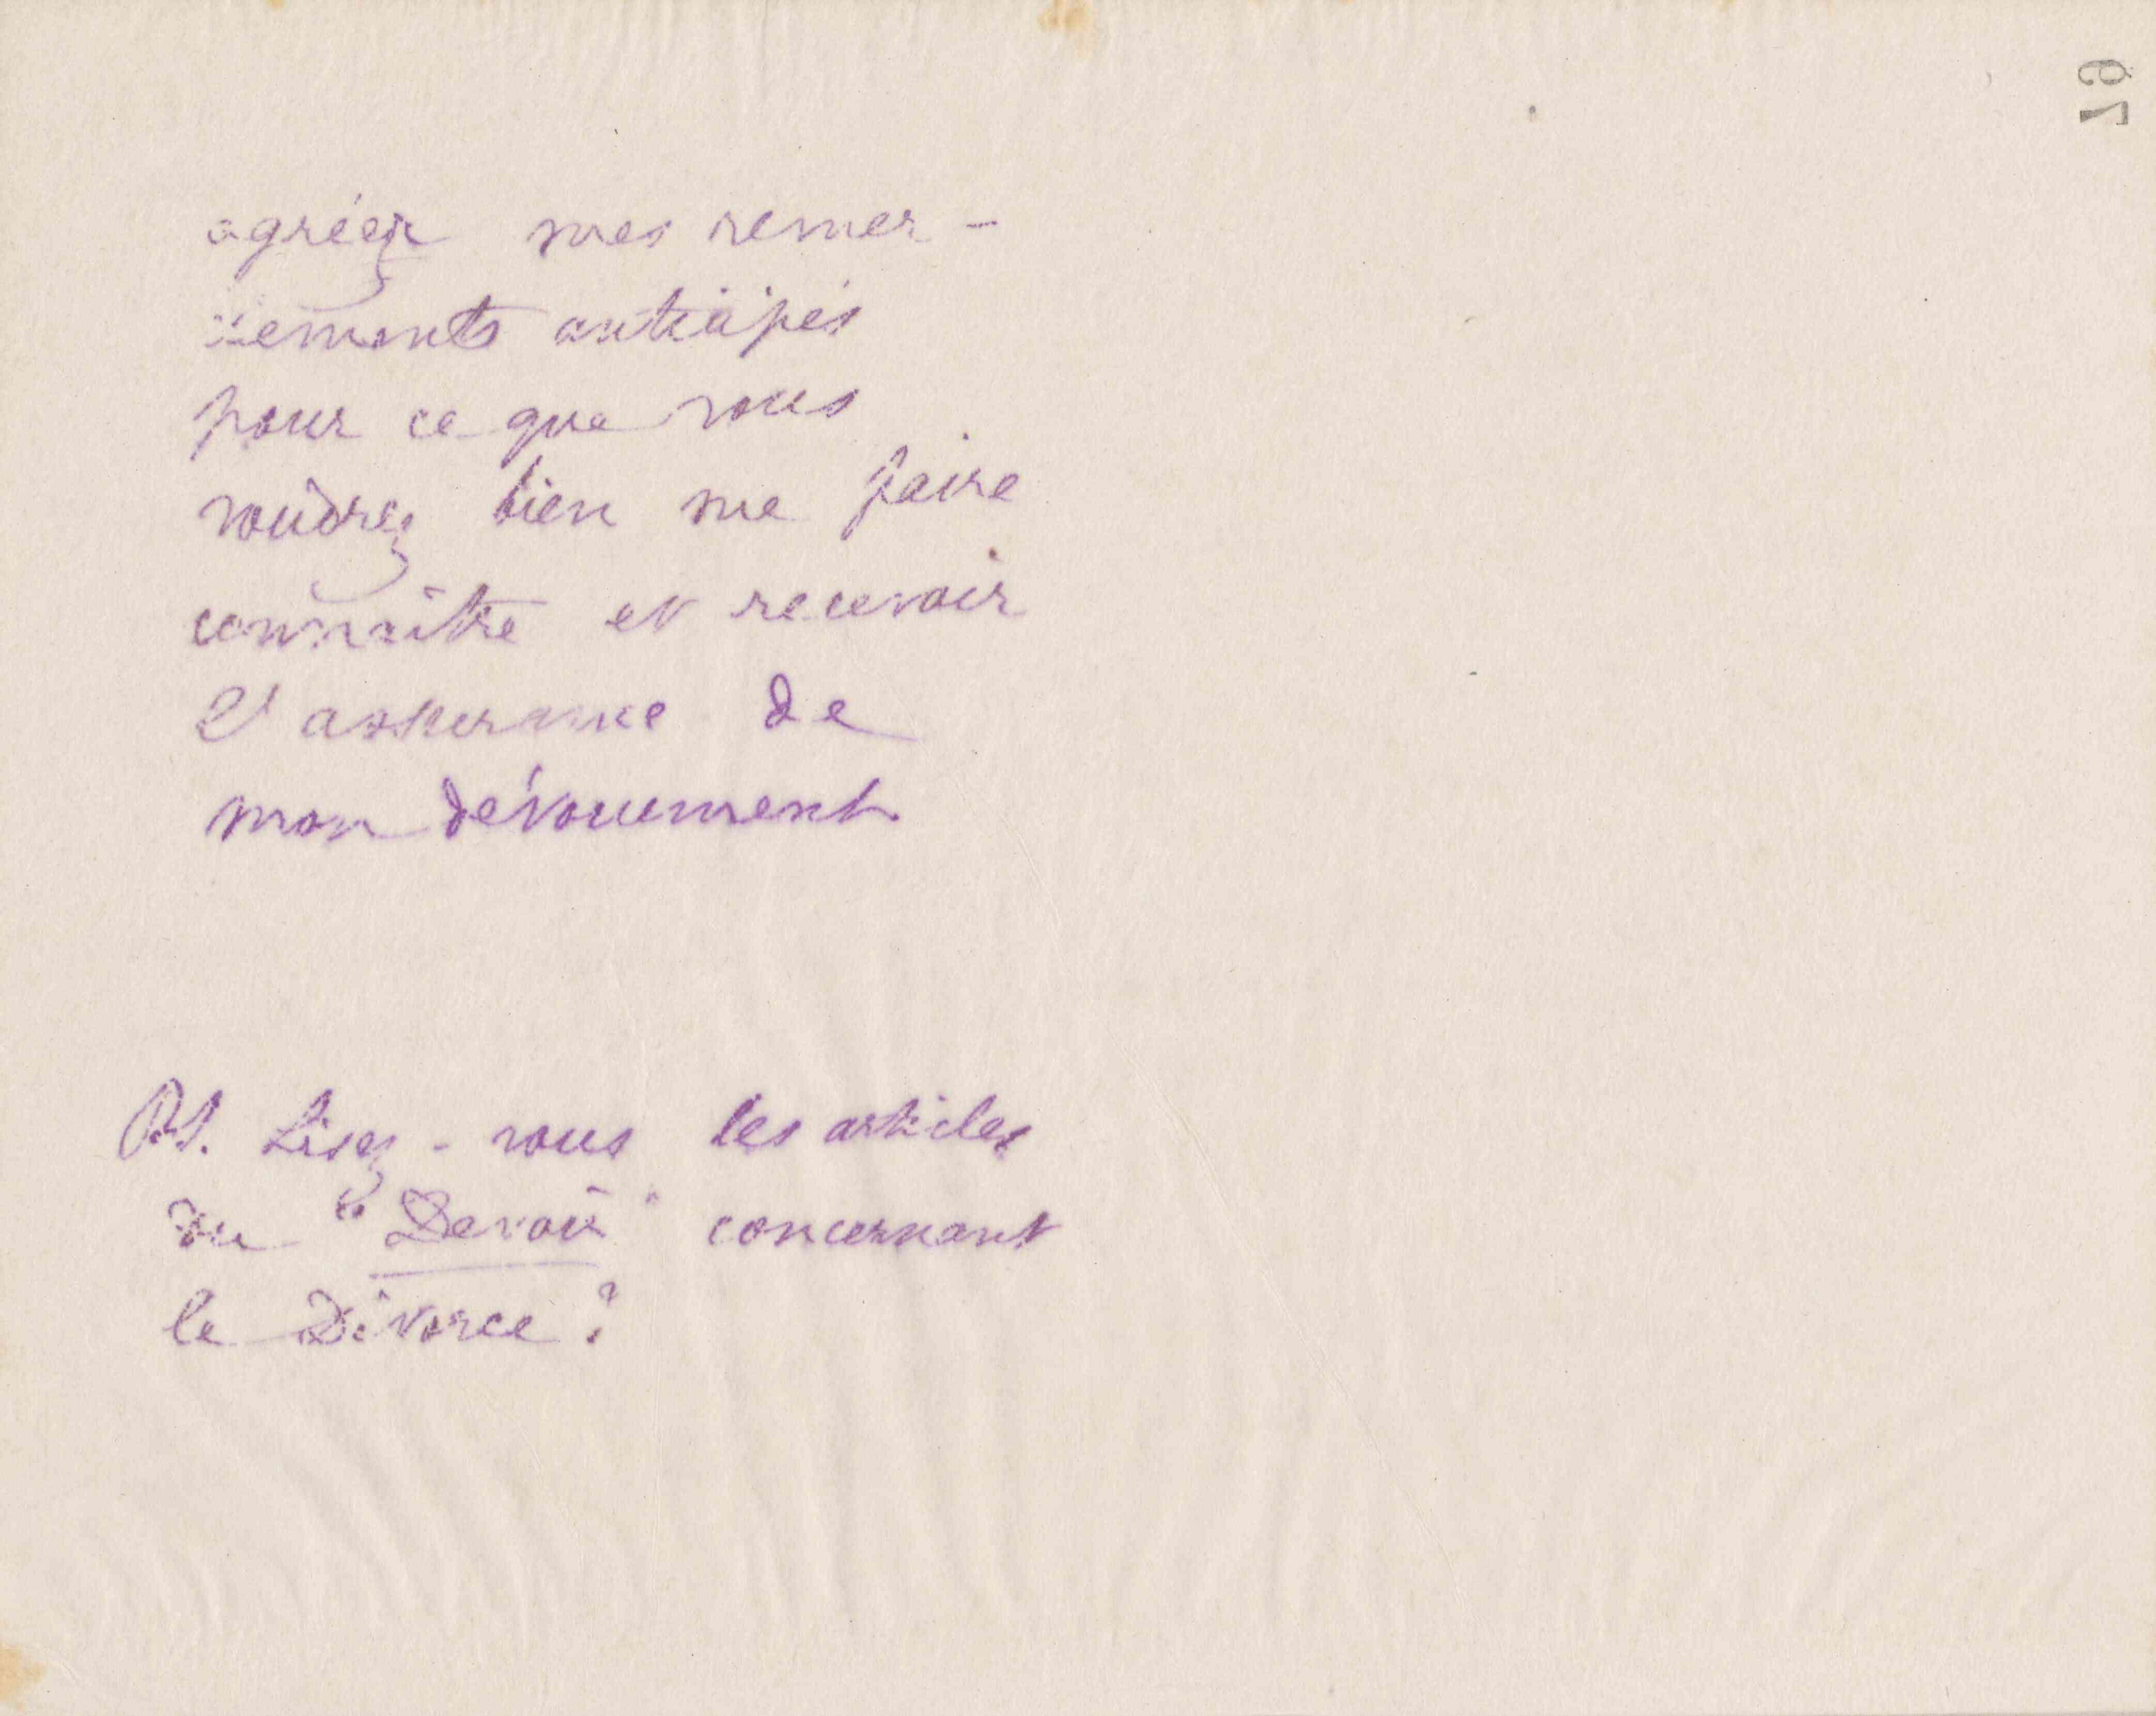 agréer mes remer-
ciements anticipés
pour ce que vous
voudrez bien me faire
connaître et recevoir
l'assurance de
mon dévouement.
PS. Lisez-vous les articles
du "Devoir" concernant
le Divorce ?